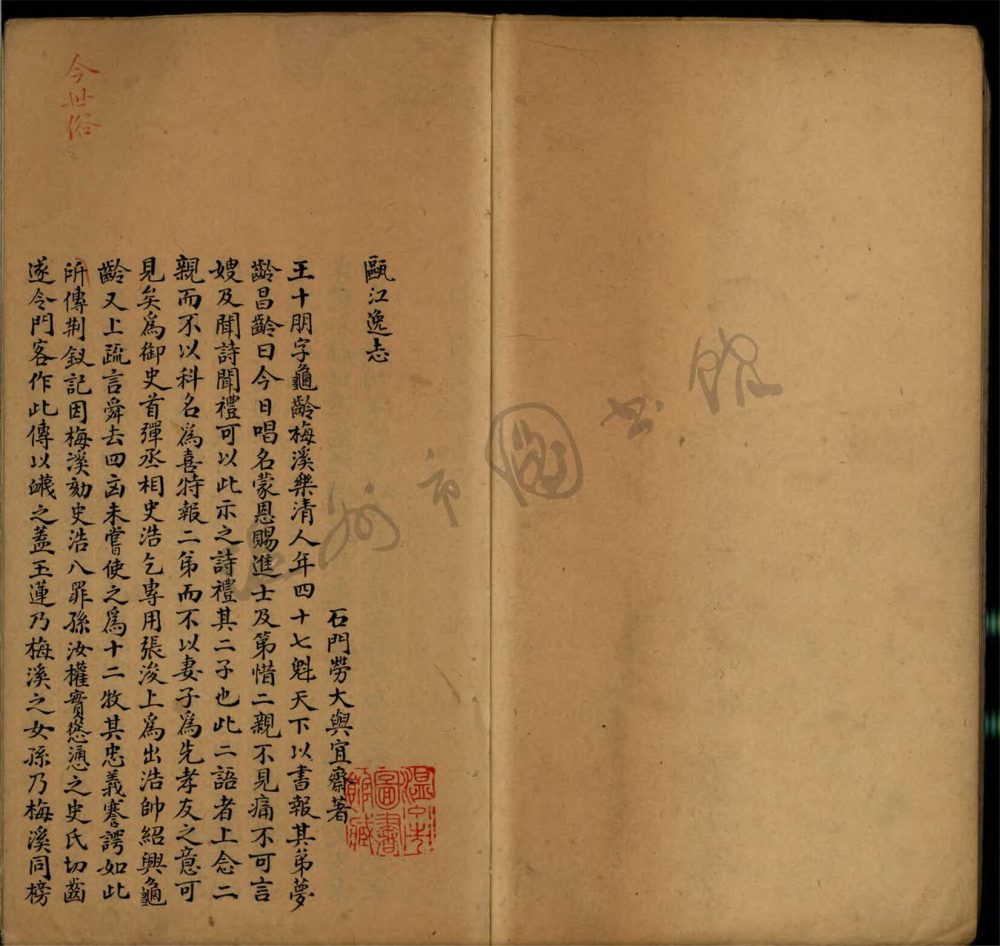 甌江逸志
石門勞大與宜齋著
王十朋字龜齡梅溪樂清人年四十七魁天下以書報其弟夢
齡昌齡曰今日唱名蒙恩賜進士及第惜二親不見痛不可言
嫂及聞詩聞禮可以此示之詩禮其二子也此二語者上念二
親而不以科名為喜特報二弟而不以妻子為先孝友之意可
見矣為御史首彈丞相史浩乞專用張浚上為出浩帥紹興龜
齡又上疏言舜去四凶未嘗使之為十二牧其忠義謇諤如此
今世俗
所傳荆釵記因梅溪劾史浩八罪孫汝權實慫慂之史氏切齒
遂令門客作此傳以衊之蓋玉蓮乃梅溪之女孫乃梅溪同榜
溫州市圖書館藏
溫州市圖書館